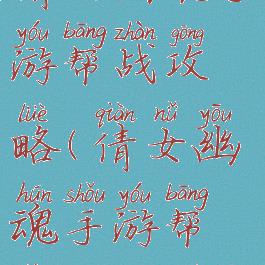 yóu bāng zhàn gōng
游帮战攻
lüè qiàn nǚ yōu
略(倩女幽
hún shǒu yóu bāng
魂手游帮